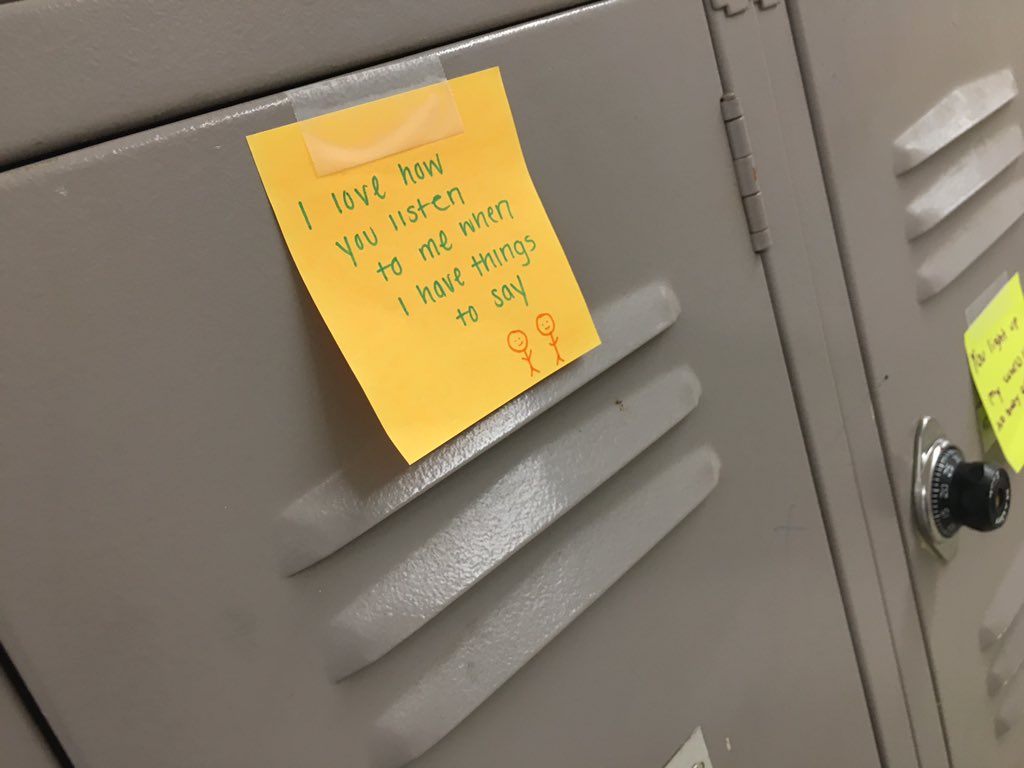 I love how
you listen
to me when
I have things
to say
You light up
my world